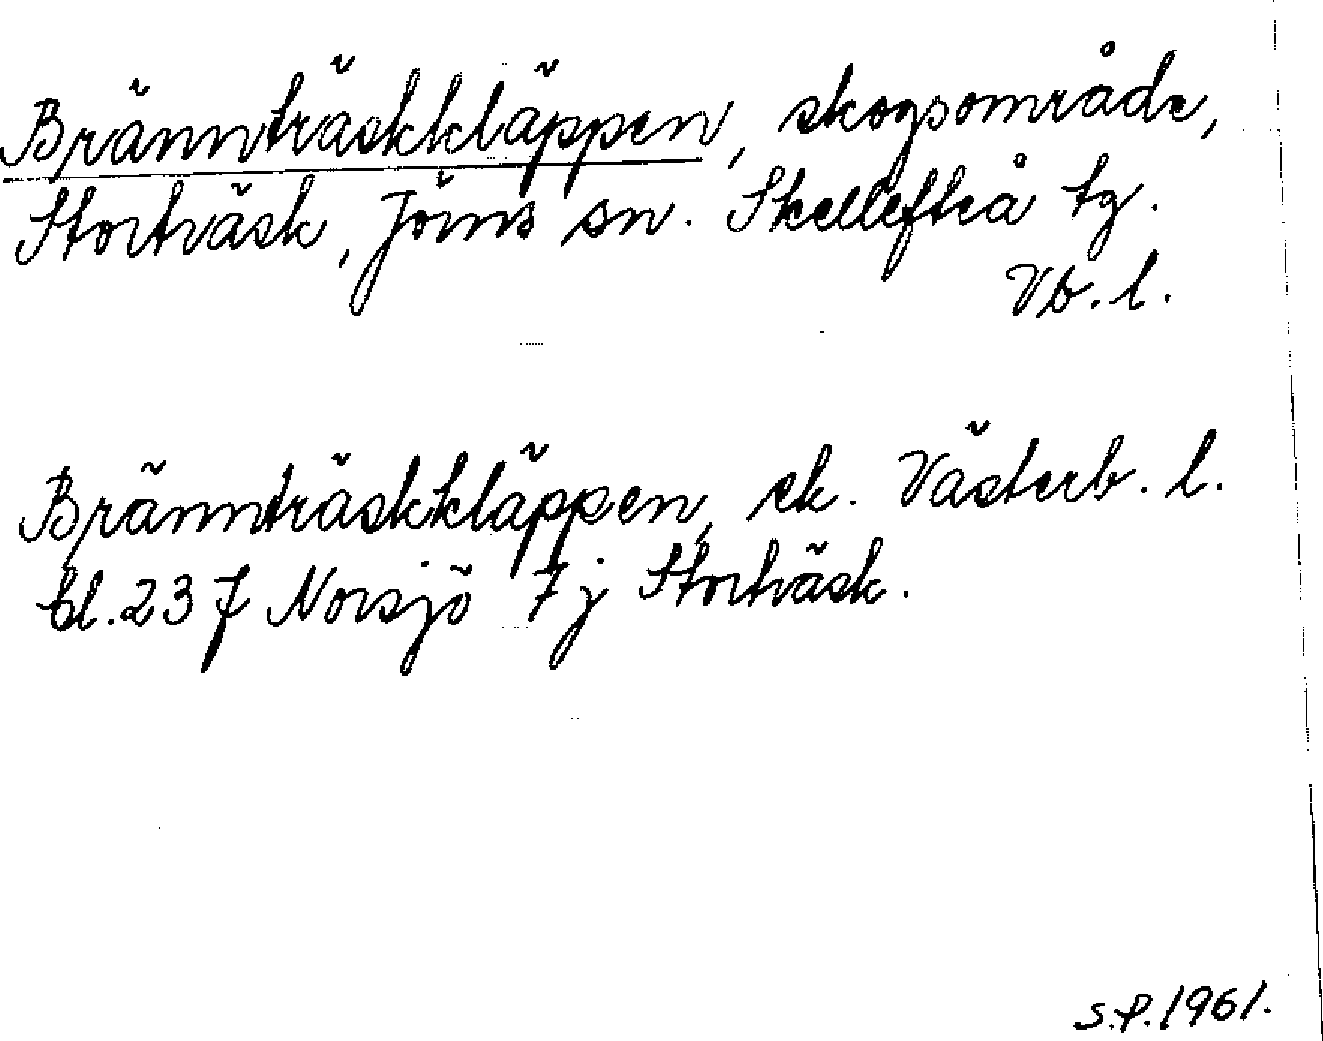 Brännträskkläppen, skogsområde,
Stortväsk, Jörns sn. Skellefteå tg.
Vb. l.
Brännträskkläppen, ek. Västerb. l.
bl. 23 J Norsjö 7 j Stortväsk.
S.P. 1961.